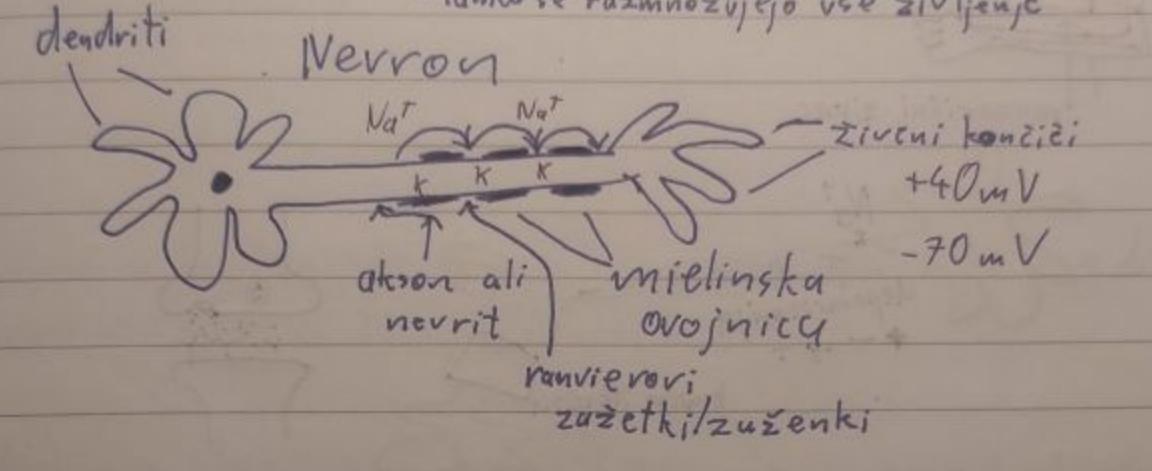 se razmnožujejo vse življenje
dendriti
Nevron
Na+ Na+
K K K
živčni končiči
+40mV
-70mV
akson ali
nevrit
mielinska
ovojnica
ranvierovi
zažetki/zuženki